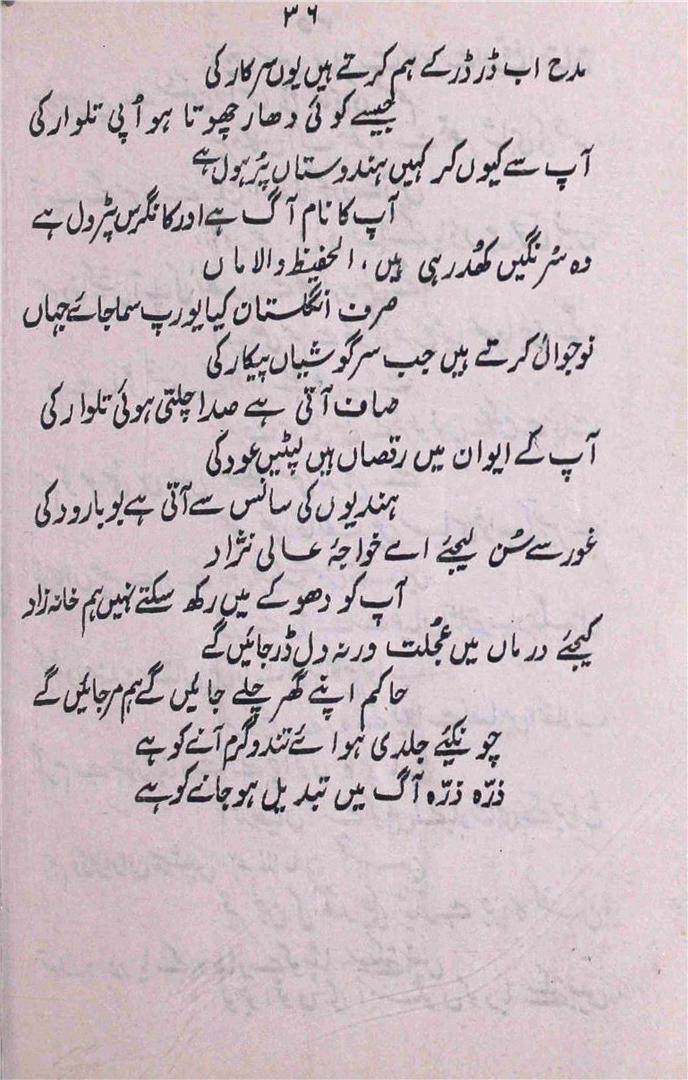 ۳۶
مدح اب ڈر ڈر کے ہم کرتے ہیں یوں سرکار کی
جیسے کوئی دھار چھوتا ہو اُپی تلوار کی
آپ سے کیوں کر کہیں ہندوستاں پُر ہول ہے
آپ کا نام آگ ہے اور کانگرس پٹرول ہے
وہ سُرنگیں کھُد رہی ہیں، الحفیظ والاماں
صرف انگلستان کیا یورپ سما جائے جہاں
نوجواں کرتے ہیں جب سرگوشیاں پیکار کی
صاف آتی ہے صدا چلتی ہوئی تلوار کی
آپ کے ایوان میں رقصاں ہیں لپٹیں عود کی
ہندیوں کی سانس سے آتی ہے بو بارود کی
غور سے سُن لیجئے اے خواجۂ عالی نژاد
آپ کو دھوکے میں رکھ سکتے نہیں ہم خانہ زاد
کیجئے درماں میں عجُلت ورنہ دل ڈر جائیں گے
حاکم اپنے گھر چلے جائیں گے ہم مر جائیں گے
چونکیئے جلدی ہوائے تند و گرم آنے کو ہے
ذرّہ ذرّہ آگ میں تبدیل ہو جانے کو ہے